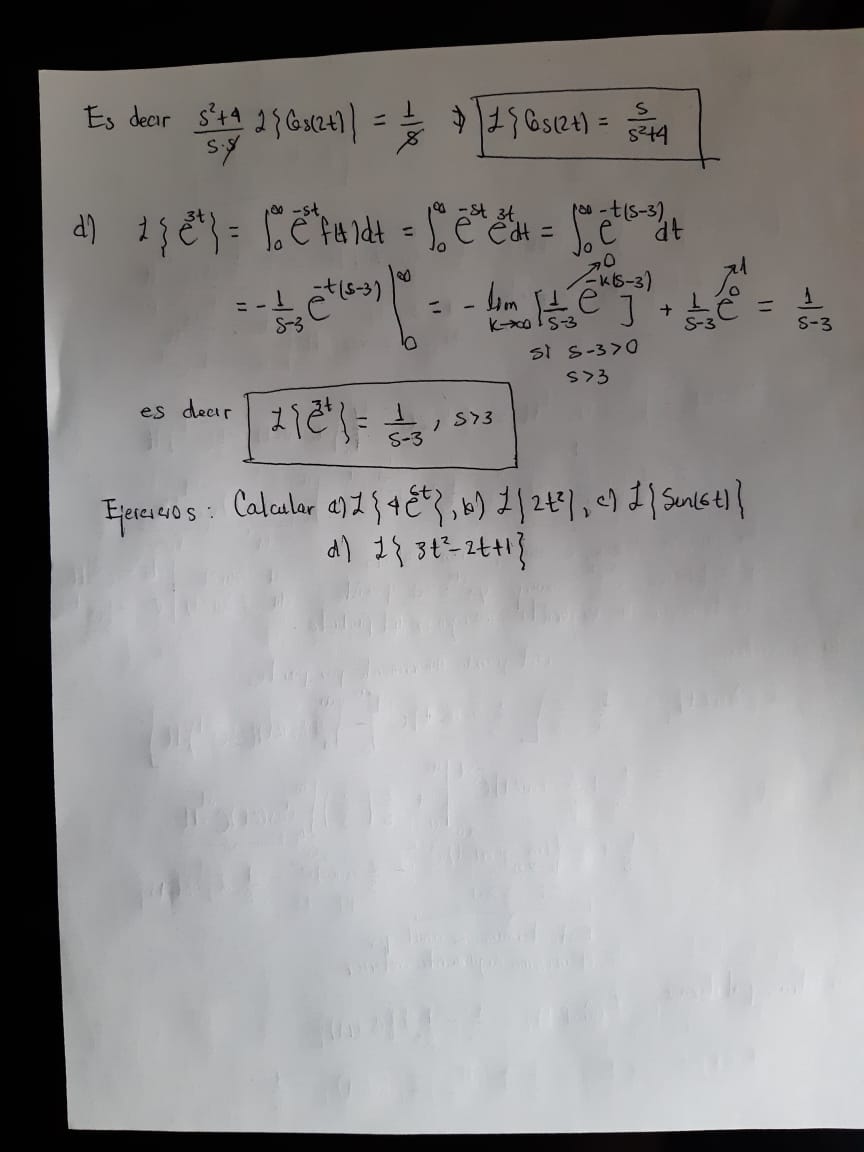 Es decir s²+4/s·s ℒ{Cos(2t)} = 1/s ⇒ ℒ{Cos(2t) = s/s²+4
d) ℒ{e^3t} = ∫₀^∞ e^-st f(t)dt = ∫₀^∞ e^-st e^3t dt = ∫₀^∞ e^-t(s-3) dt
= - 1/s-3 e^-t(s-3) |₀^∞ = - lim k→∞ [1/s-3 e^-k(s-3)]↗0 + 1/s-3 e^0↗1 = 1/s-3
si s-3>0
s>3
es decir ℒ{e^3t} = 1/s-3 , s>3
Ejercicios: Calcular a) ℒ{4e^6t}, b) ℒ{2t²}, c) ℒ{Sen(6t)}
d) ℒ{3t²-2t+1}